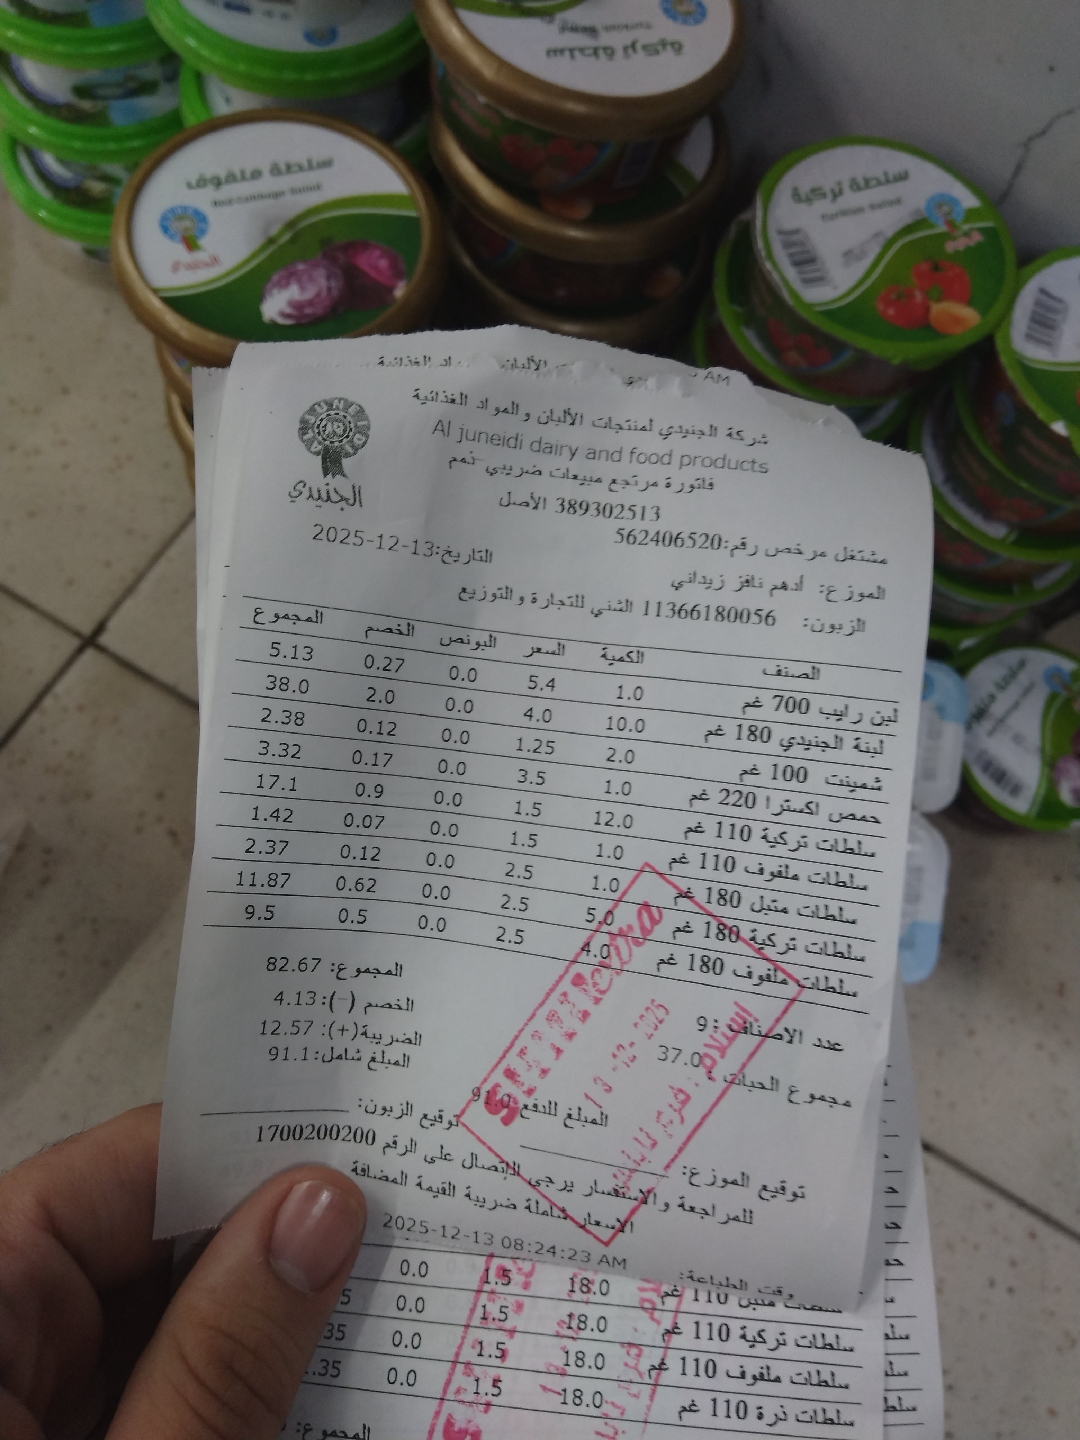 سلطة تركية
Turkish Salad
سلطة ملفوف
Red Cabbage Salad
الجنيدي
سلطة تركية
Turkish Salad
الجنيدي
AM
شركة الجنيدي لمنتجات الألبان والمواد الغذائية
Al juneidi dairy and food products
AL JUNEIDI
الجنيدي
فاتورة مرتجع مبيعات ضريبي-ذمم
389302513 الأصل
مشتغل مرخص رقم:562406520
التاريخ:2025-12-13
الموزع: أدهم نافز زيداني
الزبون: 11366180056 الشني للتجارة والتوزيع
الصنف الكمية السعر البونص الخصم المجموع
لبن رايب 700 غم 1.0 5.4 0.0 0.27 5.13
لبنة الجنيدي 180 غم 10.0 4.0 0.0 2.0 38.0
شمينت 100 غم 2.0 1.25 0.0 0.12 2.38
حمص اكسترا 220 غم 1.0 3.5 0.0 0.17 3.32
سلطات تركية 110 غم 12.0 1.5 0.0 0.9 17.1
سلطات ملفوف 110 غم 1.0 1.5 0.0 0.07 1.42
سلطات متبل 180 غم 1.0 2.5 0.0 0.12 2.37
سلطات تركية 180 غم 5.0 2.5 0.0 0.62 11.87
سلطات ملفوف 180 غم 4.0 2.5 0.0 0.5 9.5
المجموع: 82.67
الخصم (-): 4.13
الضريبة(+): 12.57
المبلغ شامل: 91.1
عدد الاصناف : 9
مجموع الحبات : 37.0
المبلغ للدفع 91.0
extra
13-12-2025
إستلام : فرع نابلس
توقيع الزبون:
توقيع الموزع:
للمراجعة والاستفسار يرجى الإتصال على الرقم 1700200200
الاسعار شاملة ضريبة القيمة المضافة
وقت الطباعة: 2025-12-13 08:24:23 AM
سلطات متبل 110 غم 18.0 1.5 0.0
سلطات تركية 110 غم 18.0 1.5 0.0
سلطات ملفوف 110 غم 18.0 1.5 0.0 35
سلطات ذرة 110 غم 18.0 1.5 0.0 .35
المجموع: